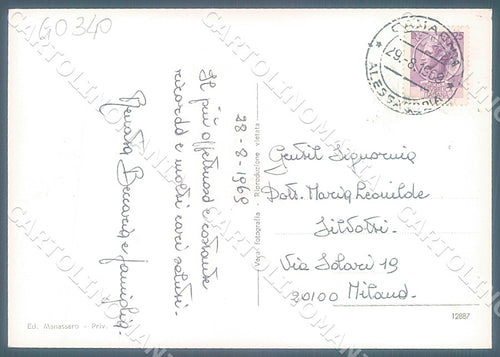 GO 340
CAMAGNA
29.-8.1969
ALESSANDRIA
25
28-8-1969
Il più affettuoso e costante
ricordo e molti cari saluti.
Renata Beccaria e famiglia.
Vera fotografia - Riproduzione vietata
Gentil Signorina
Dott. Maria Leonilde
Silvotti.
Via Solari 19
20100 Milano.
Ed. Manassero - Priv.
12887
CARTOLINOMANIA